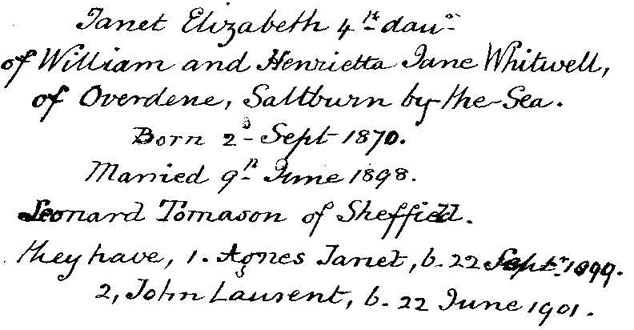 Janet Elizabeth 4th daur
of William and Henrietta Jane Whitwell,
of Overdene, Saltburn by the-Sea.
Born 2d Sept 1870.
Married 9th June 1898.
Leonard Tomason of Sheffield.
they have, 1. Agnes Janet, b. 22 Septr 1899.
2, John Laurent, b. 22 June 1901.